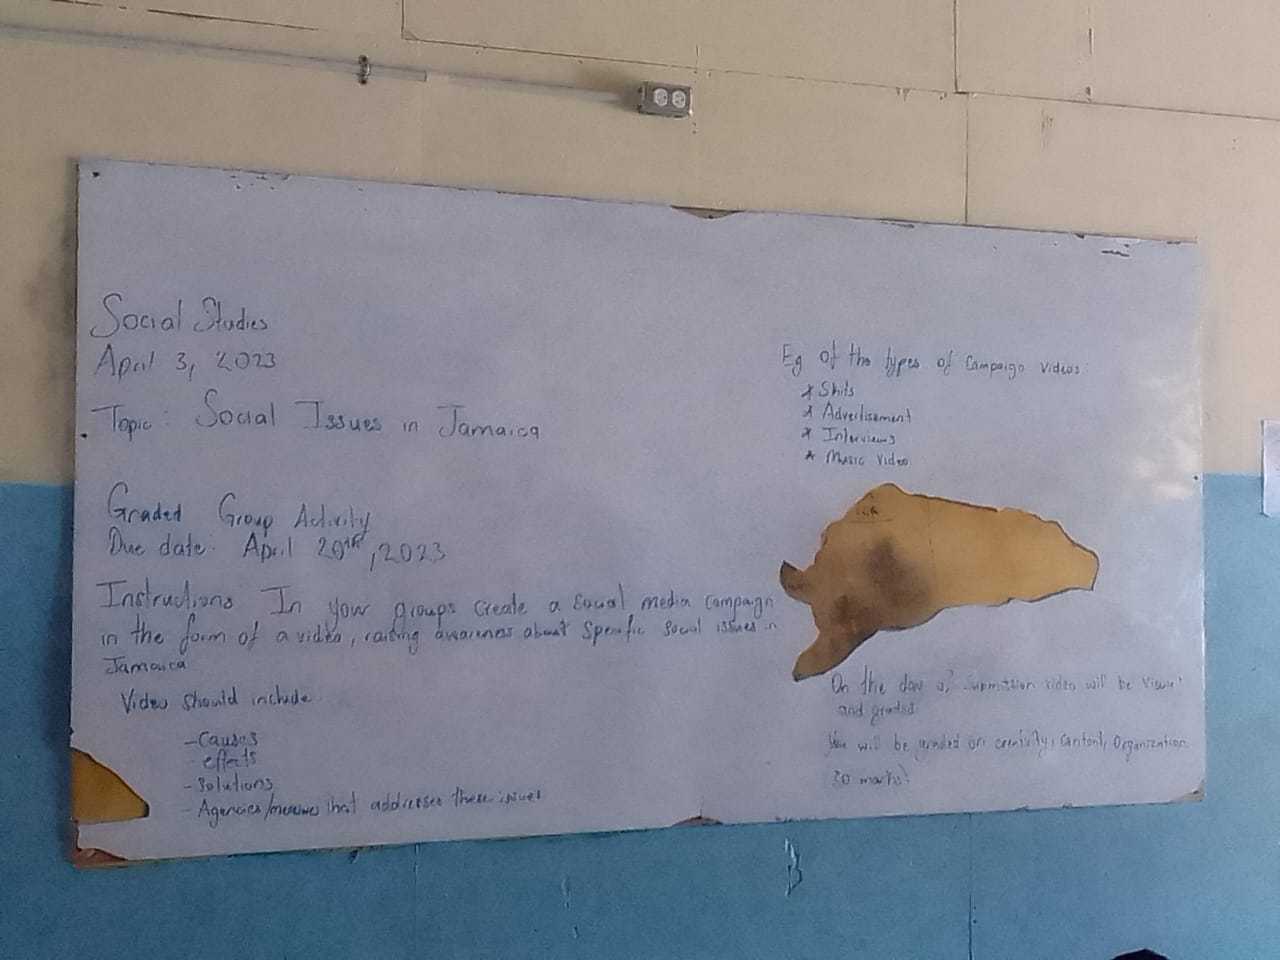 Social Studies
April 3, 2023
Topic: Social Issues in Jamaica
Graded Group Activity
Due date: April 20th, 2023
Instructions In your groups create a social media campaign
in the form of a video, raising awareness about specific social issues in
Jamaica
Video should include
- Causes
- effects
- Solutions
- Agencies/measures that addresses these issues
Eg of the types of Campaign Videos:
* Skits
* Advertisement
* Interviews
* Music Video
On the day of submission video will be viewed
and graded
You will be graded on: creativity, Content, Organization
30 marks!